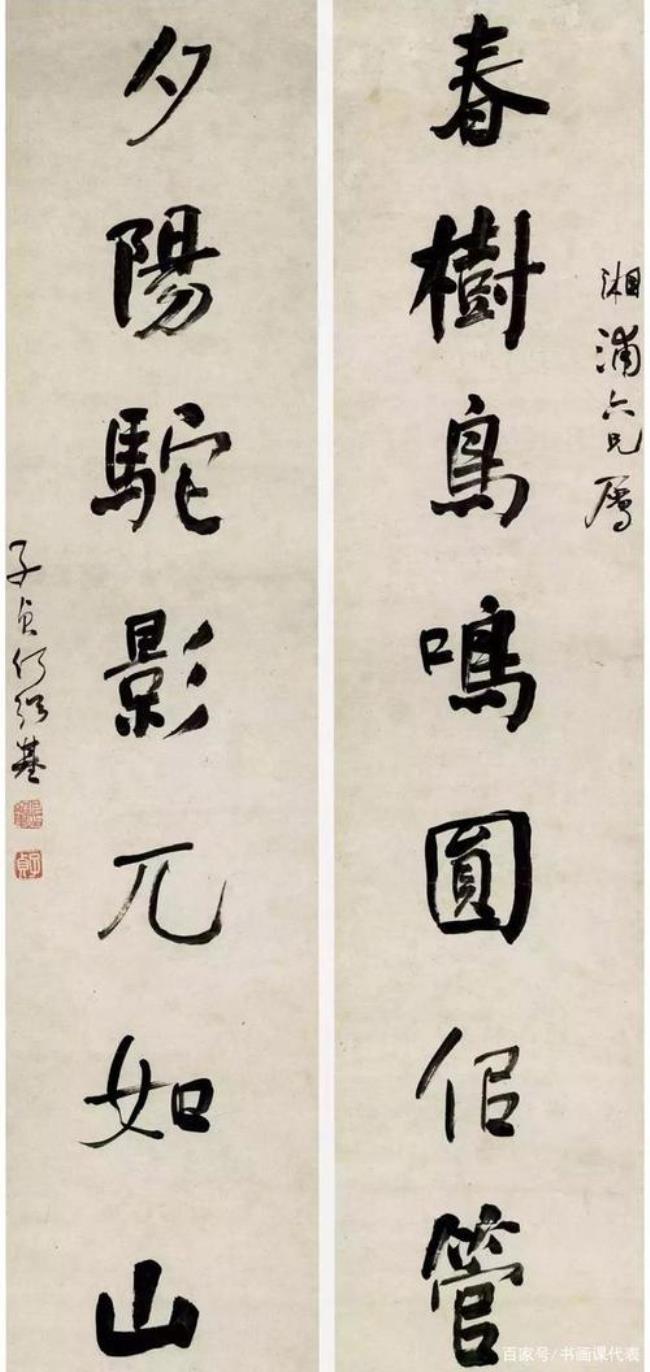 湘浦六兄屬
春樹鳥鳴圓佀管
夕陽駝影兀如山
子貞何紹基
子貞
百家号/书画课代表